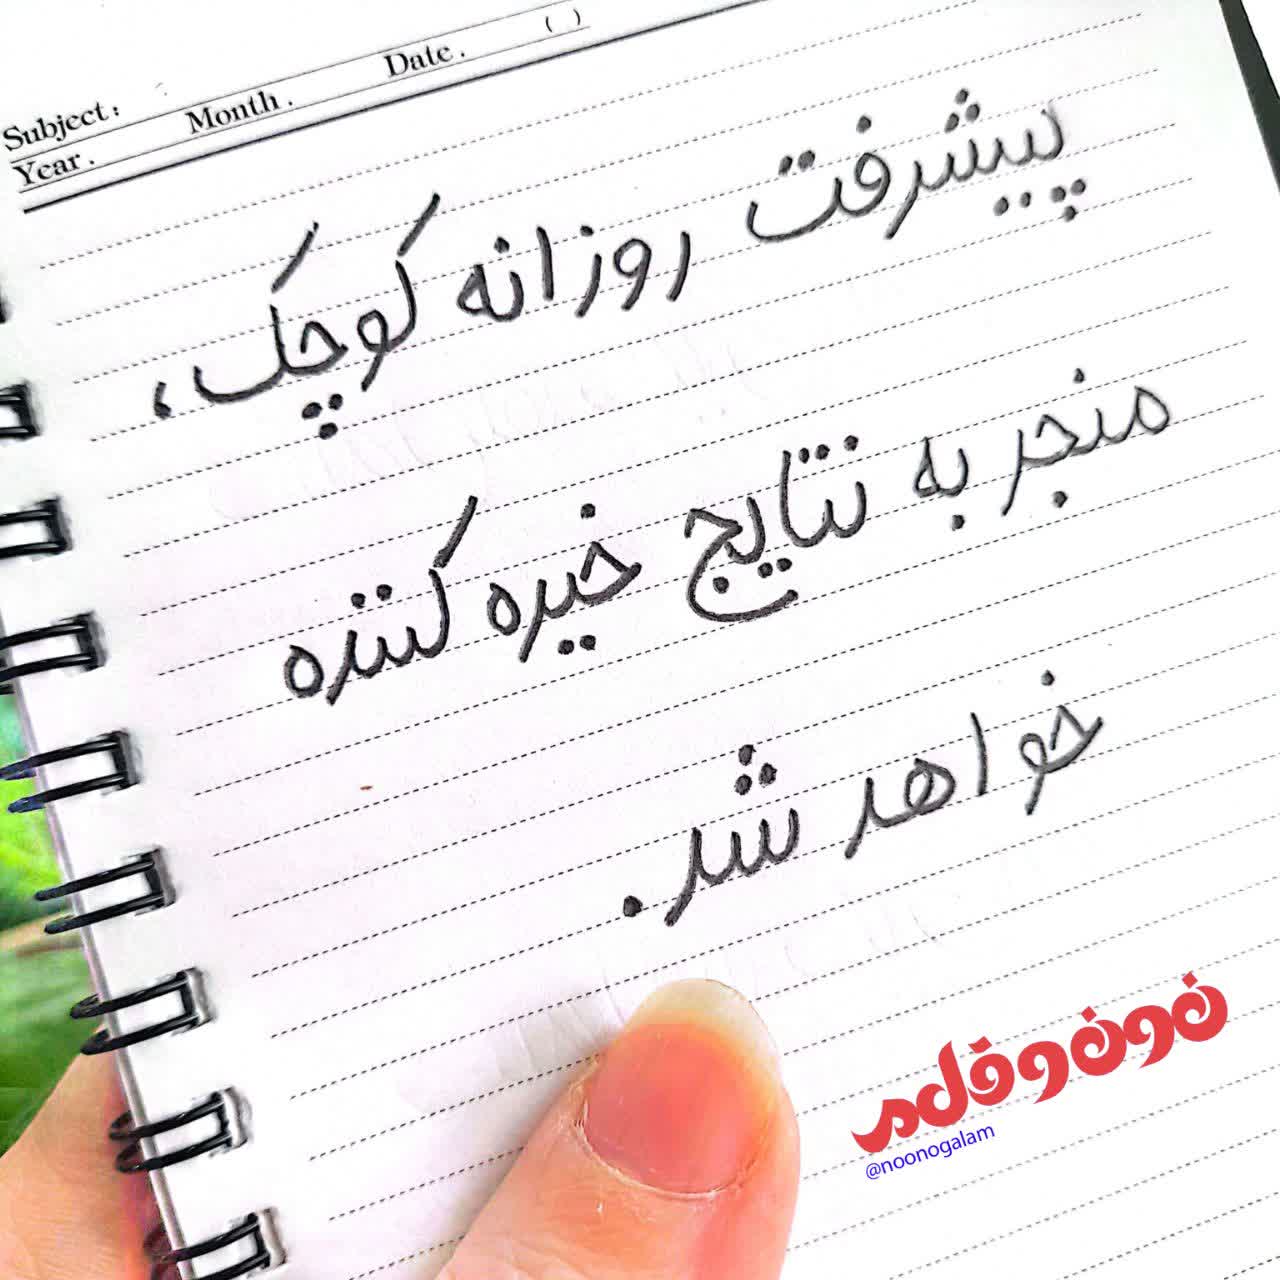 Subject:
Year. Month. Date. ( )
پیشرفت روزانه کوچک،
منجر به نتایج خیره کننده
خواهد شد.
نون و قلم
@noonogalam